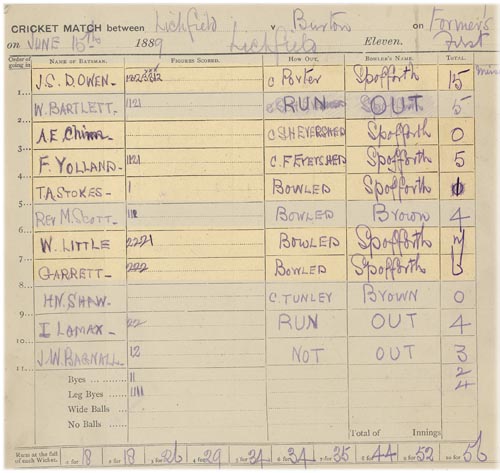 CRICKET MATCH between Lichfield v Burton on Former's
on JUNE 15th 1889 Lichfield Eleven. First
Order of going in NAME OF BATSMAN. FIGURES SCORED. HOW OUT. BOWLER'S NAME. TOTAL.
1. J.S. DOWEN c Porter Spofforth 15
2. W. BARTLETT 1121 RUN OUT 5
3. A.E. Spofforth 0
4. F. YOLLAND 1121 Spofforth 5
5. T.A STOKES 1 BOWLED Spofforth 1
6. Rev M. SCOTT BOWLED BROWN 4
7. W. LITTLE 2221 BOWLED Spofforth 7
8. GARRETT 222 BOWLED Spofforth
9. H.N. SHAW C. TUNLEY BROWN 0
10. I LOMAX 22 RUN OUT 4
11. J.W. BAGNALL 12 NOT OUT 3
Byes ...... 11 2
Leg Byes ...... 1111 4
Wide Balls ......
No Balls ......
Total of Innings
Runs at the fall of each Wicket. 1 for 18 2 for 18 3 for 26 4 for 29 5 for 34 6 for 34 7 for 35 8 for 44 9 for 52 10 for 56